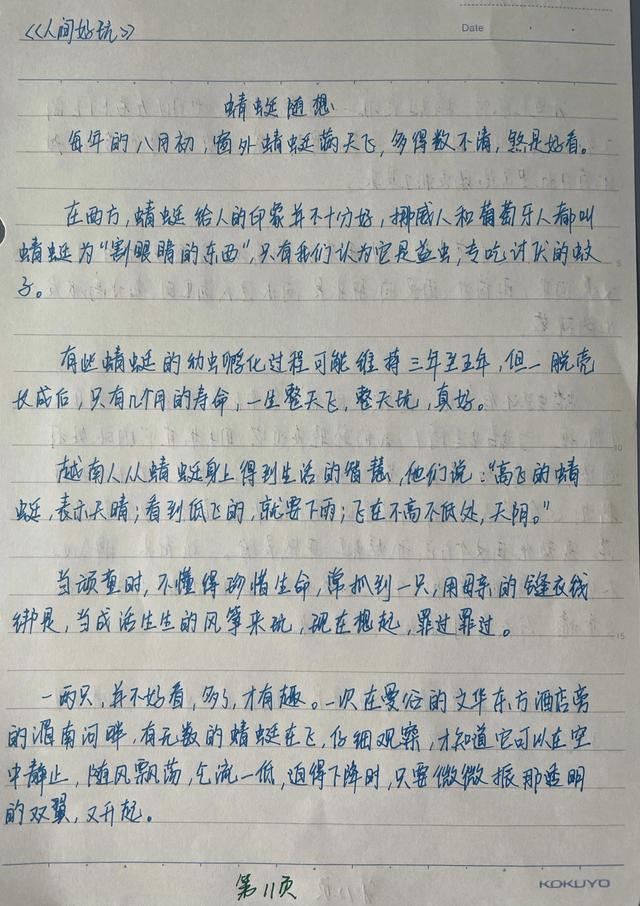 《人间好玩》
Date
蜻蜓随想
每年的八月初，窗外蜻蜓满天飞，多得数不清，煞是好看。
在西方，蜻蜓给人的印象并不十分好，挪威人和葡萄牙人都叫
蜻蜓为“割眼睛的东西”，只有我们认为它是益虫，专吃讨厌的蚊
子。
有些蜻蜓的幼虫孵化过程可能维持三年至五年，但一脱壳
长成后，只有几个月的寿命，一生整天飞，整天玩，真好。
越南人从蜻蜓身上得到生活的智慧，他们说：“高飞的蜻
蜓，表示天晴；看到低飞的，就要下雨；飞在不高不低处，天阴。”
当顽童时，不懂得珍惜生命，常抓到一只，用母亲的缝衣线
绑是，当成活生生的风筝来玩，现在想起，罪过罪过。
一两只，并不好看，多了，才有趣。一次在曼谷的文华东方酒店旁
的湄南河畔，有无数的蜻蜓在飞，仔细观察，才知道它可以在空
中静止，随风飘荡，气流一低，迫得下降时，只要微微振那透明
的双翼，又升起。
第11页
KOKUYO
5
10
15